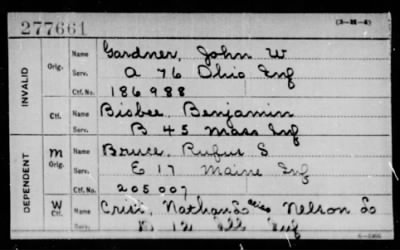 277661 (3-M-4)
INVALID
Orig. Name Gardner, John W
Serv. A 76 Ohio Inf
Ctf. No. 186988
Ctf. Name Bisbee, Benjamin
Serv. B 45 Mass Inf
DEPENDENT
M Orig. Name Bruce, Rufus S
Serv. E 17 Maine Inf
Ctf. No. 205007
W Ctf. Name Nathan alias Nelson
Serv. 12 Inf